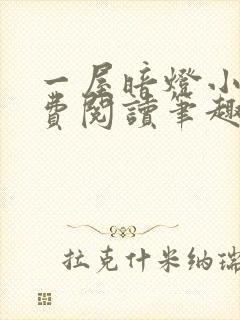 一屋暗燈小
費閱讀筆趣
拉克什米納瑞